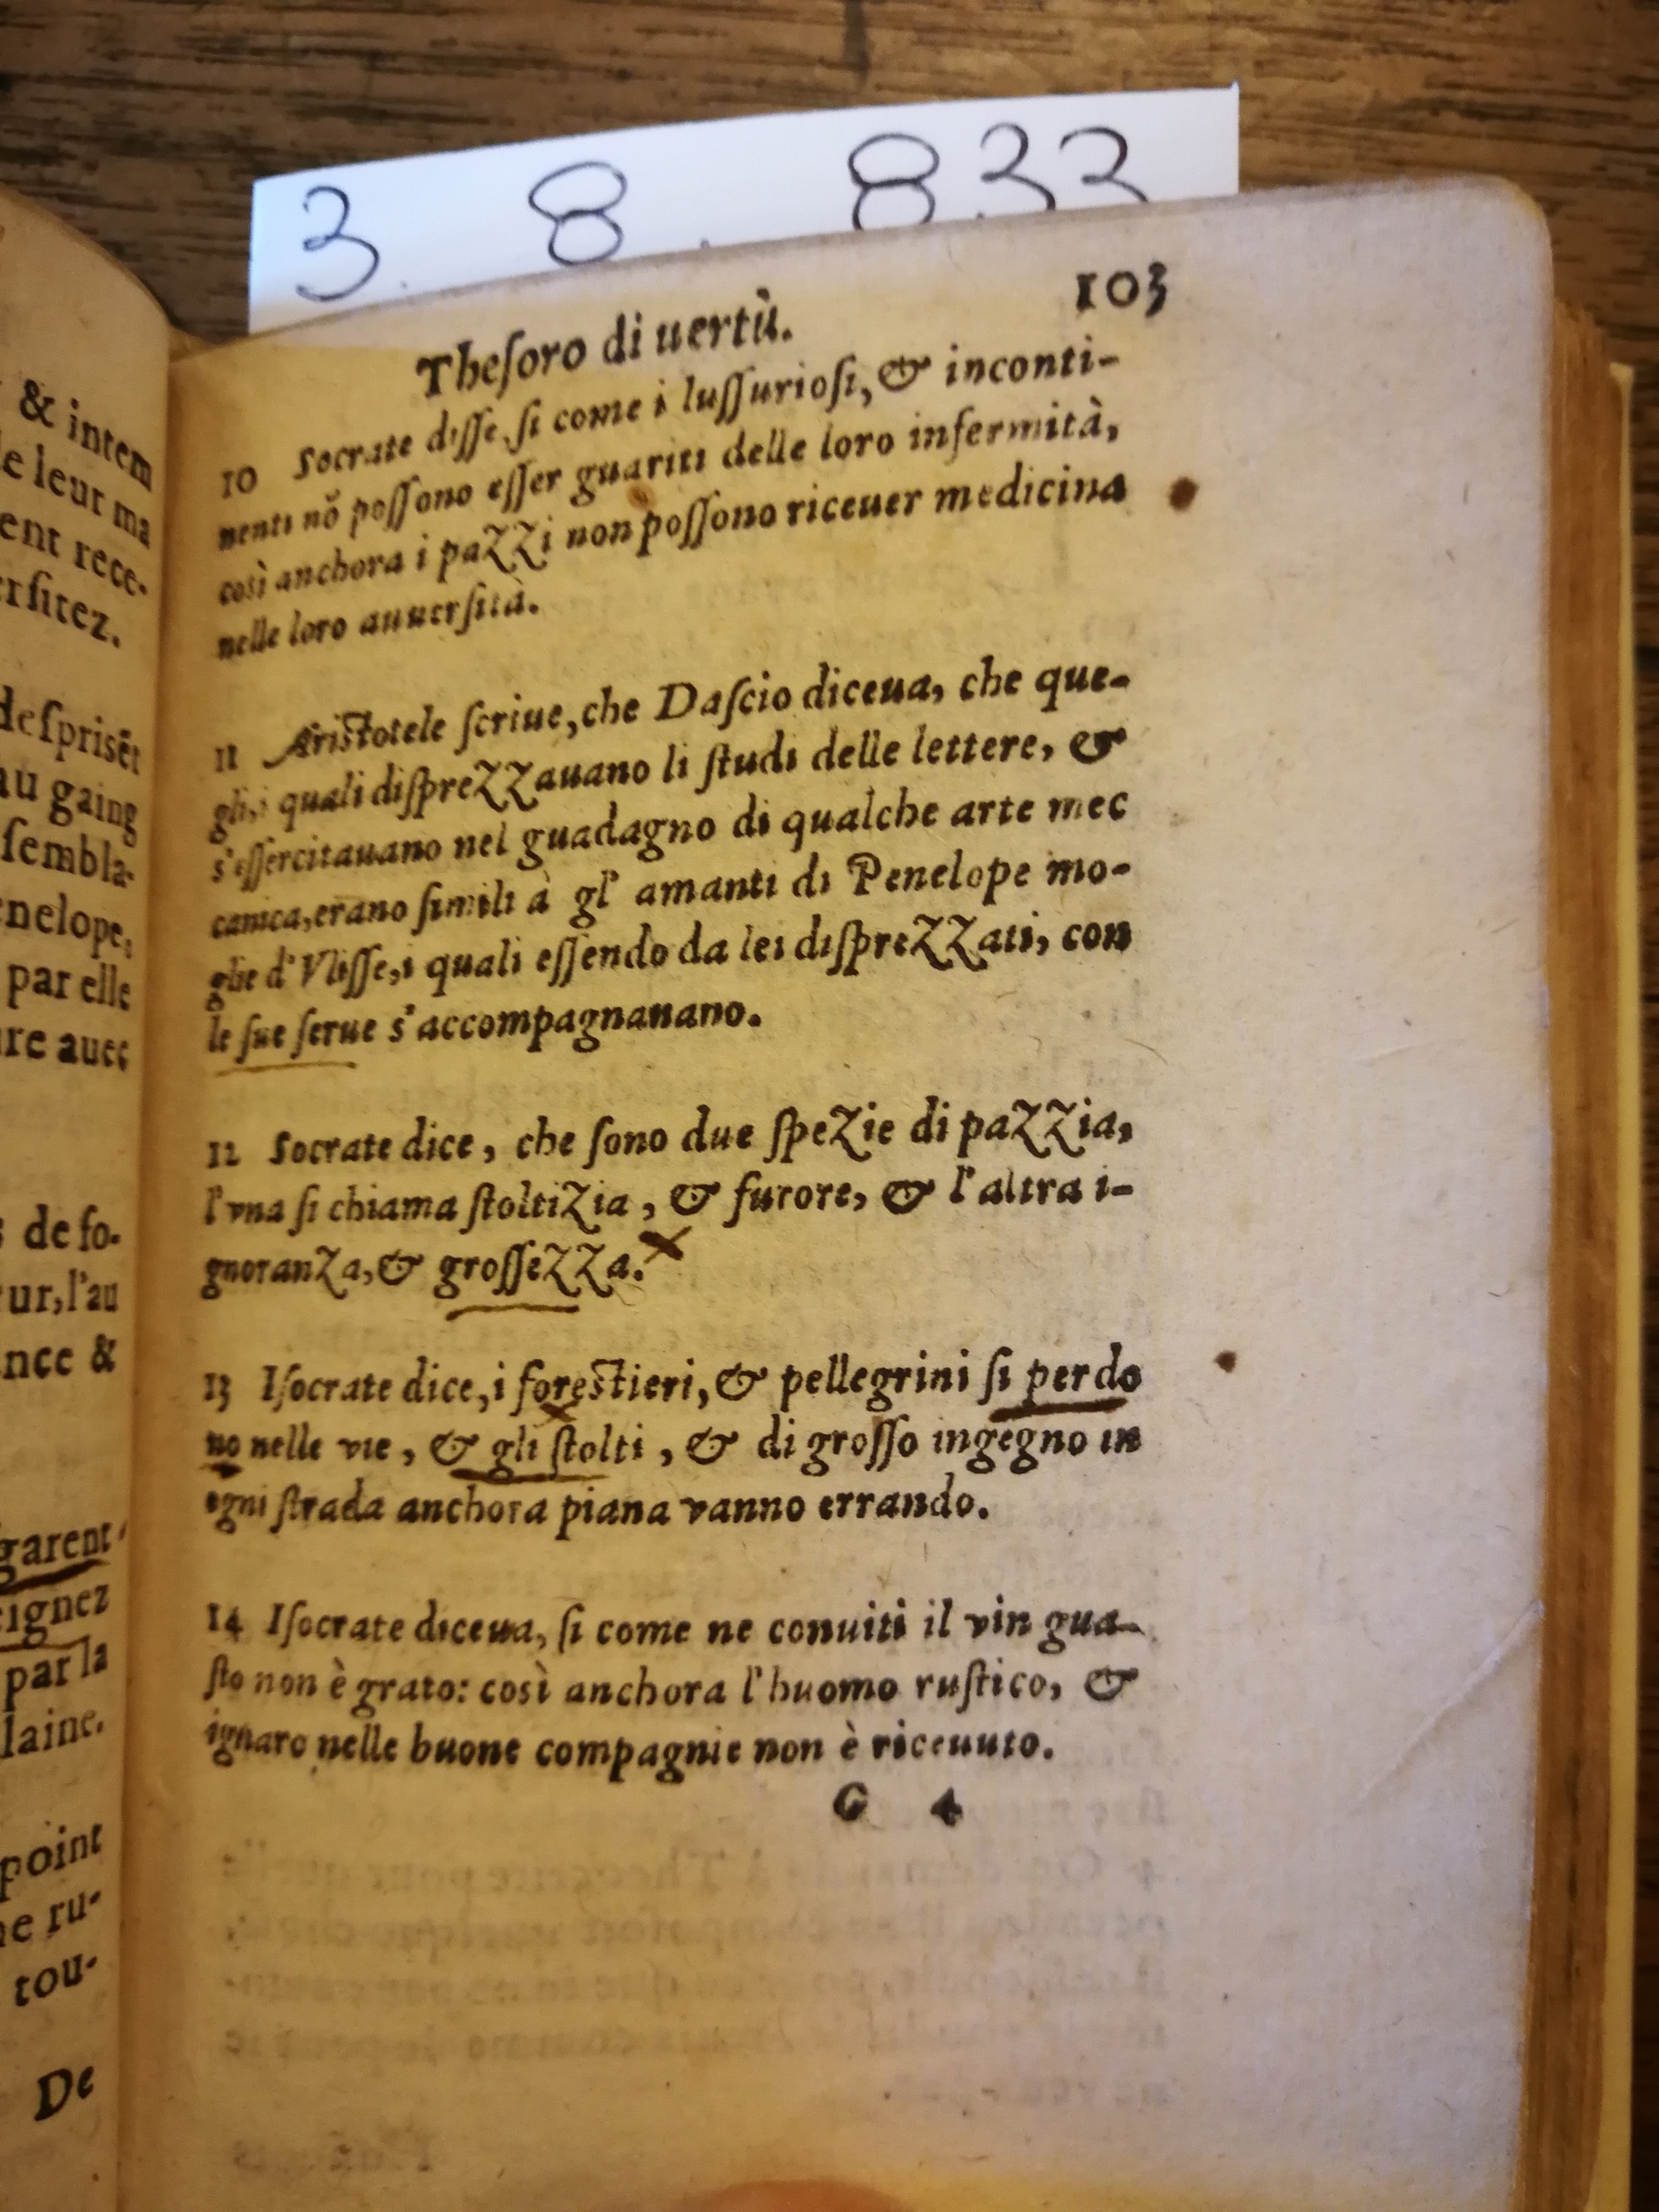 3. 8. 833
& intem
e leur ma
ent rece-
ersitez.
desprisēt
au gaing
sembla-
nelope,
par elle
re auec
de so-
ur, l'au
nce &
garent
ignez
par la
laine.
point
e ru-
tou-
De
103
Theſoro di uertù.
10 Socrate diſſe, ſi come i luſſurioſi, & inconti-
nenti nō poſſono eſſer guariti delle loro infermità,
così anchora i pazzi non poſſono riceuer medicina
nelle loro auuerſità.
11 Ariſtotele ſcriue, che Daſcio diceua, che que-
gli, i quali diſprezzauano li ſtudi delle lettere, &
s'eſſercitauano nel guadagno di qualche arte mec
canica, erano ſimili à gl' amanti di Penelope mo-
glie d'Vliſſe, i quali eſſendo da lei diſprezzati, con
le ſue ſerue s'accompagnauano.
12 Socrate dice, che ſono due ſpezie di pazzia,
l'vna ſi chiama ſtoltizia, & furore, & l'altra i-
gnoranza, & groſſezza.
13 Iſocrate dice, i foreſtieri, & pellegrini ſi perdo
no nelle vie, & gli ſtolti, & di groſſo ingegno in
ogni ſtrada anchora piana vanno errando.
14 Iſocrate diceua, ſi come ne conuiti il vin gua-
ſto non è grato: così anchora l'huomo ruſtico, &
ignaro nelle buone compagnie non è riceuuto.
G 4